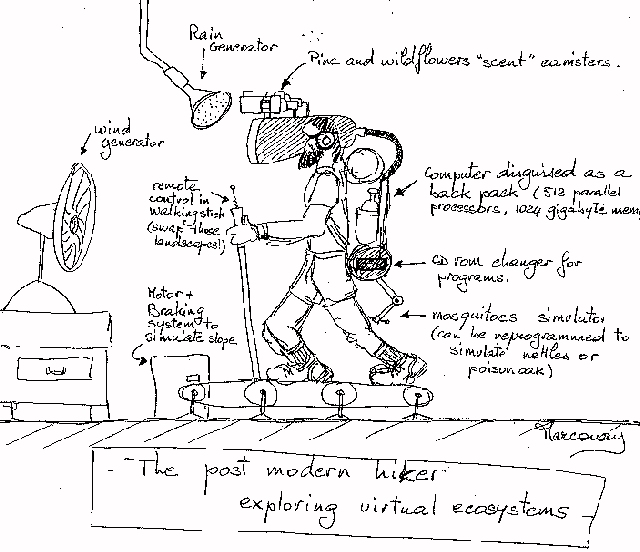 Rain
Generator
Pine and wildflowers "scent" canisters.
wind
generator
remote
control in
walking stick
(swap those
landscapes!)
Computer disguised as a
back pack (512 parallel
processors, 1024 gigabyte mem
CD rom changer for
programs.
Motor +
Braking
system to
simulate slope
mosquitoes simulator
(can be reprogrammed to
simulate nettles or
poison oak)
The post modern hiker
exploring virtual ecosystems